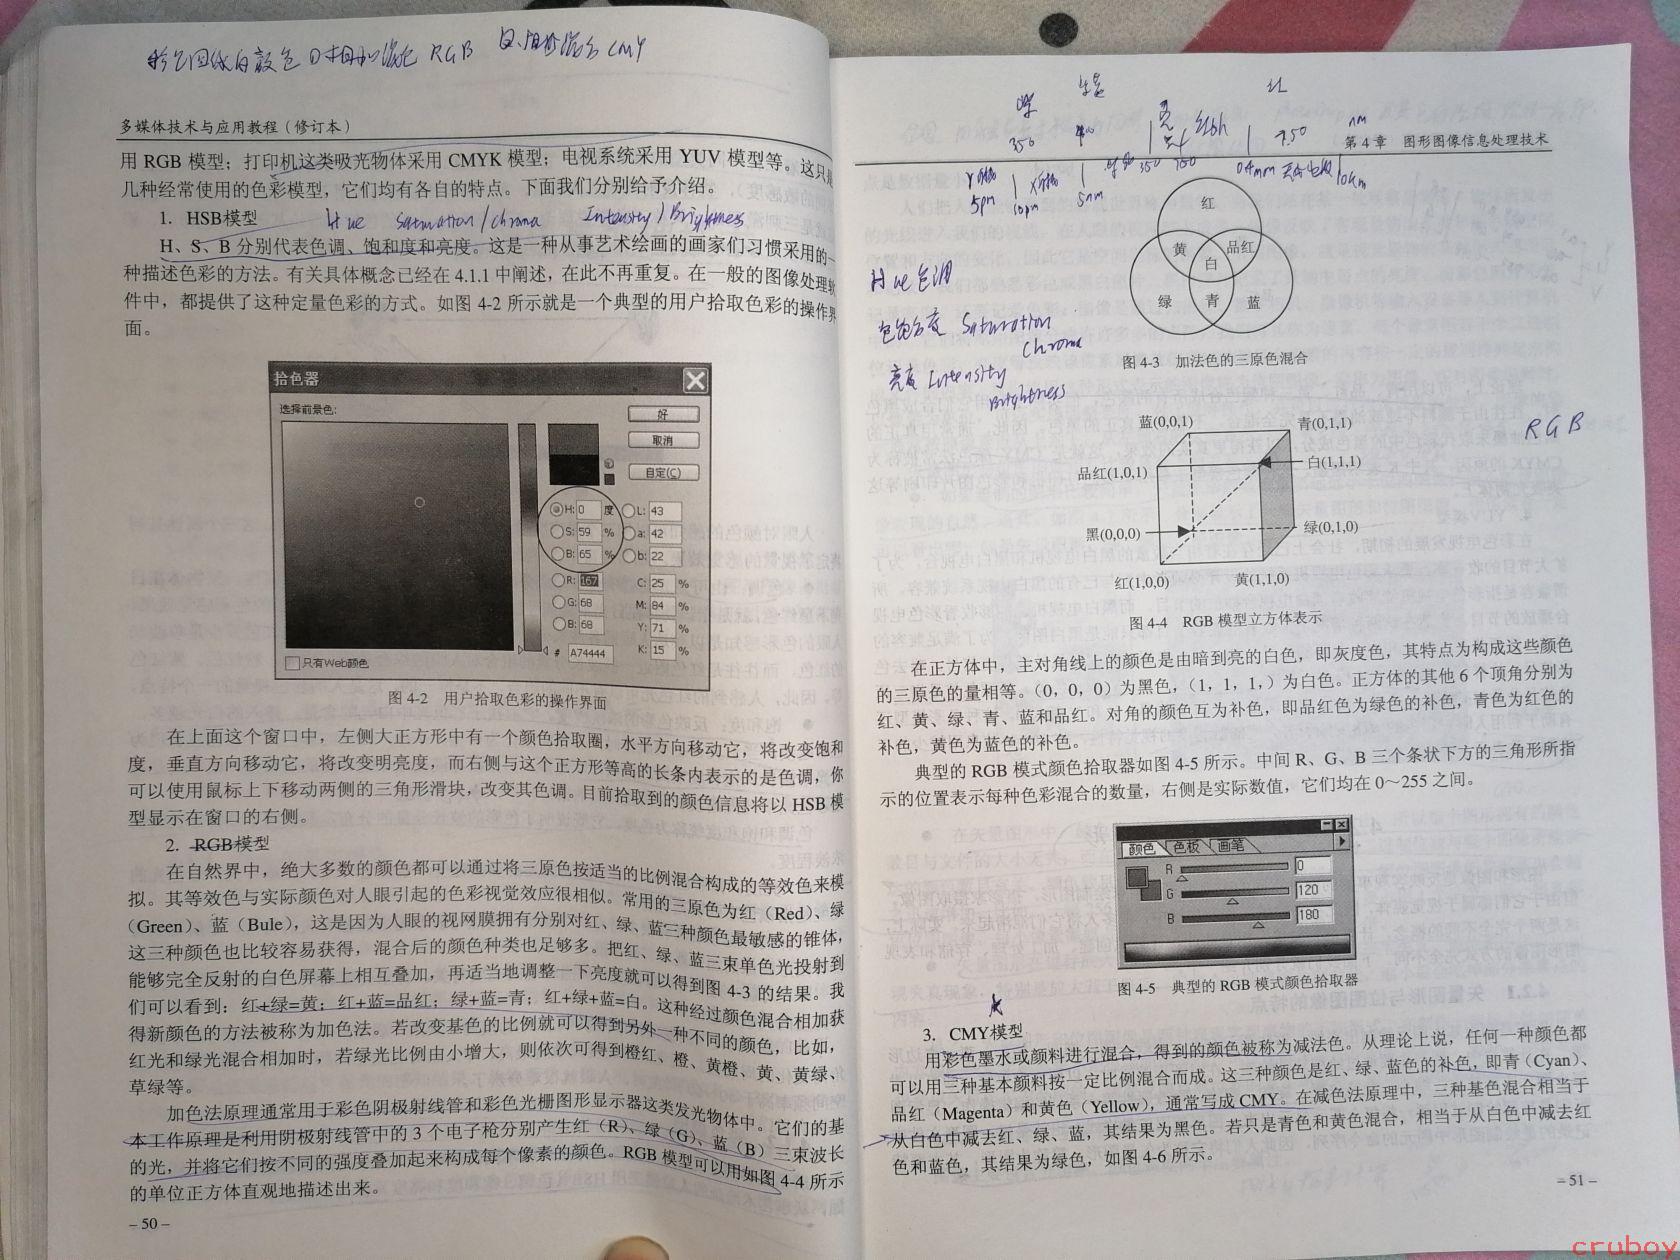 RGB
CMY
多媒体技术与应用教程（修订本）
用 RGB 模型；打印机这类吸光物体采用 CMYK 模型；电视系统采用 YUV 模型等。这只是
几种经常使用的色彩模型，它们均有各自的特点。下面我们分别给予介绍。
1. HSB模型 Hue Saturation/chroma Intensity/Brightness
H、S、B 分别代表色调、饱和度和亮度。这是一种从事艺术绘画的画家们习惯采用的一
种描述色彩的方法。有关具体概念已经在 4.1.1 中阐述，在此不再重复。在一般的图像处理软
件中，都提供了这种定量色彩的方式。如图 4-2 所示就是一个典型的用户拾取色彩的操作界
面。
拾色器
选择前景色:
好
取消
自定(C)
H: 0 度 L: 43
S: 59 % a: 42
B: 65 % b: 22
R: 167 C: 25 %
G: 68 M: 84 %
B: 68 Y: 71 %
# A74444 K: 15 %
只有Web颜色
图 4-2 用户拾取色彩的操作界面
在上面这个窗口中，左侧大正方形中有一个颜色拾取圈，水平方向移动它，将改变饱和
度，垂直方向移动它，将改变明亮度，而右侧与这个正方形等高的长条内表示的是色调，你
可以使用鼠标上下移动两侧的三角形滑块，改变其色调。目前拾取到的颜色信息将以 HSB 模
型显示在窗口的右侧。
2. RGB模型
在自然界中，绝大多数的颜色都可以通过将三原色按适当的比例混合构成的等效色来模
拟。其等效色与实际颜色对人眼引起的色彩视觉效应很相似。常用的三原色为红（Red）、绿
（Green）、蓝（Bule），这是因为人眼的视网膜拥有分别对红、绿、蓝三种颜色最敏感的锥体，
这三种颜色也比较容易获得，混合后的颜色种类也足够多。把红、绿、蓝三束单色光投射到
能够完全反射的白色屏幕上相互叠加，再适当地调整一下亮度就可以得到图 4-3 的结果。我
们可以看到：红+绿=黄；红+蓝=品红；绿+蓝=青；红+绿+蓝=白。这种经过颜色混合相加获
得新颜色的方法被称为加色法。若改变基色的比例就可以得到另外一种不同的颜色，比如，
红光和绿光混合相加时，若绿光比例由小增大，则依次可得到橙红、橙、黄橙、黄、黄绿、
草绿等。
加色法原理通常用于彩色阴极射线管和彩色光栅图形显示器这类发光物体中。它们的基
本工作原理是利用阴极射线管中的 3 个电子枪分别产生红（R）、绿（G）、蓝（B）三束波长
的光，并将它们按不同的强度叠加起来构成每个像素的颜色。RGB 模型可以用如图 4-4 所示
的单位正方体直观地描述出来。
– 50 –
红
350 750 nm
第 4 章 图形图像信息处理技术
5pm 10pm 5nm
Hue 色调
色饱和度 Saturation
Chroma
亮度 Intensity
Brightness
红
黄 品红
白
绿 青 蓝
图 4-3 加法色的三原色混合
RGB
蓝(0,0,1) 青(0,1,1)
品红(1,0,1) 白(1,1,1)
黑(0,0,0) 绿(0,1,0)
红(1,0,0) 黄(1,1,0)
图 4-4 RGB 模型立方体表示
在正方体中，主对角线上的颜色是由暗到亮的白色，即灰度色，其特点为构成这些颜色
的三原色的量相等。（0，0，0）为黑色，（1，1，1，）为白色。正方体的其他 6 个顶角分别为
红、黄、绿、青、蓝和品红。对角的颜色互为补色，即品红色为绿色的补色，青色为红色的
补色，黄色为蓝色的补色。
典型的 RGB 模式颜色拾取器如图 4-5 所示。中间 R、G、B 三个条状下方的三角形所指
示的位置表示每种色彩混合的数量，右侧是实际数值，它们均在 0～255 之间。
颜色 色板 画笔
R 0
G 120
B 180
图 4-5 典型的 RGB 模式颜色拾取器
3. CMY模型
用彩色墨水或颜料进行混合，得到的颜色被称为减法色。从理论上说，任何一种颜色都
可以用三种基本颜料按一定比例混合而成。这三种颜色是红、绿、蓝色的补色，即青（Cyan）、
品红（Magenta）和黄色（Yellow），通常写成 CMY。在减色法原理中，三种基色混合相当于
从白色中减去红、绿、蓝，其结果为黑色。若只是青色和黄色混合，相当于从白色中减去红
色和蓝色，其结果为绿色，如图 4-6 所示。
– 51 –
cruboy